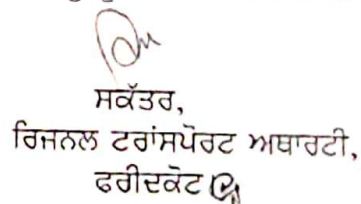 ਸਕੱਤਰ,
ਰਿਜਨਲ ਟਰਾਂਸਪੋਰਟ ਅਥਾਰਟੀ,
ਫਰੀਦਕੋਟ